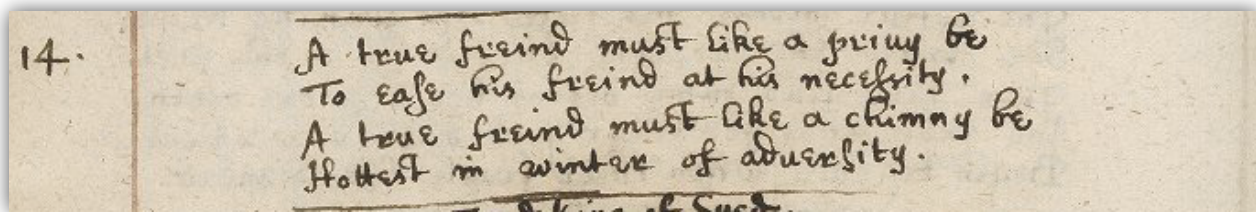 14.
A true freind must like a privy be
To ease his freind at his necessity.
A true freind must like a chimny be
Hottest in winter of adversity.
King of